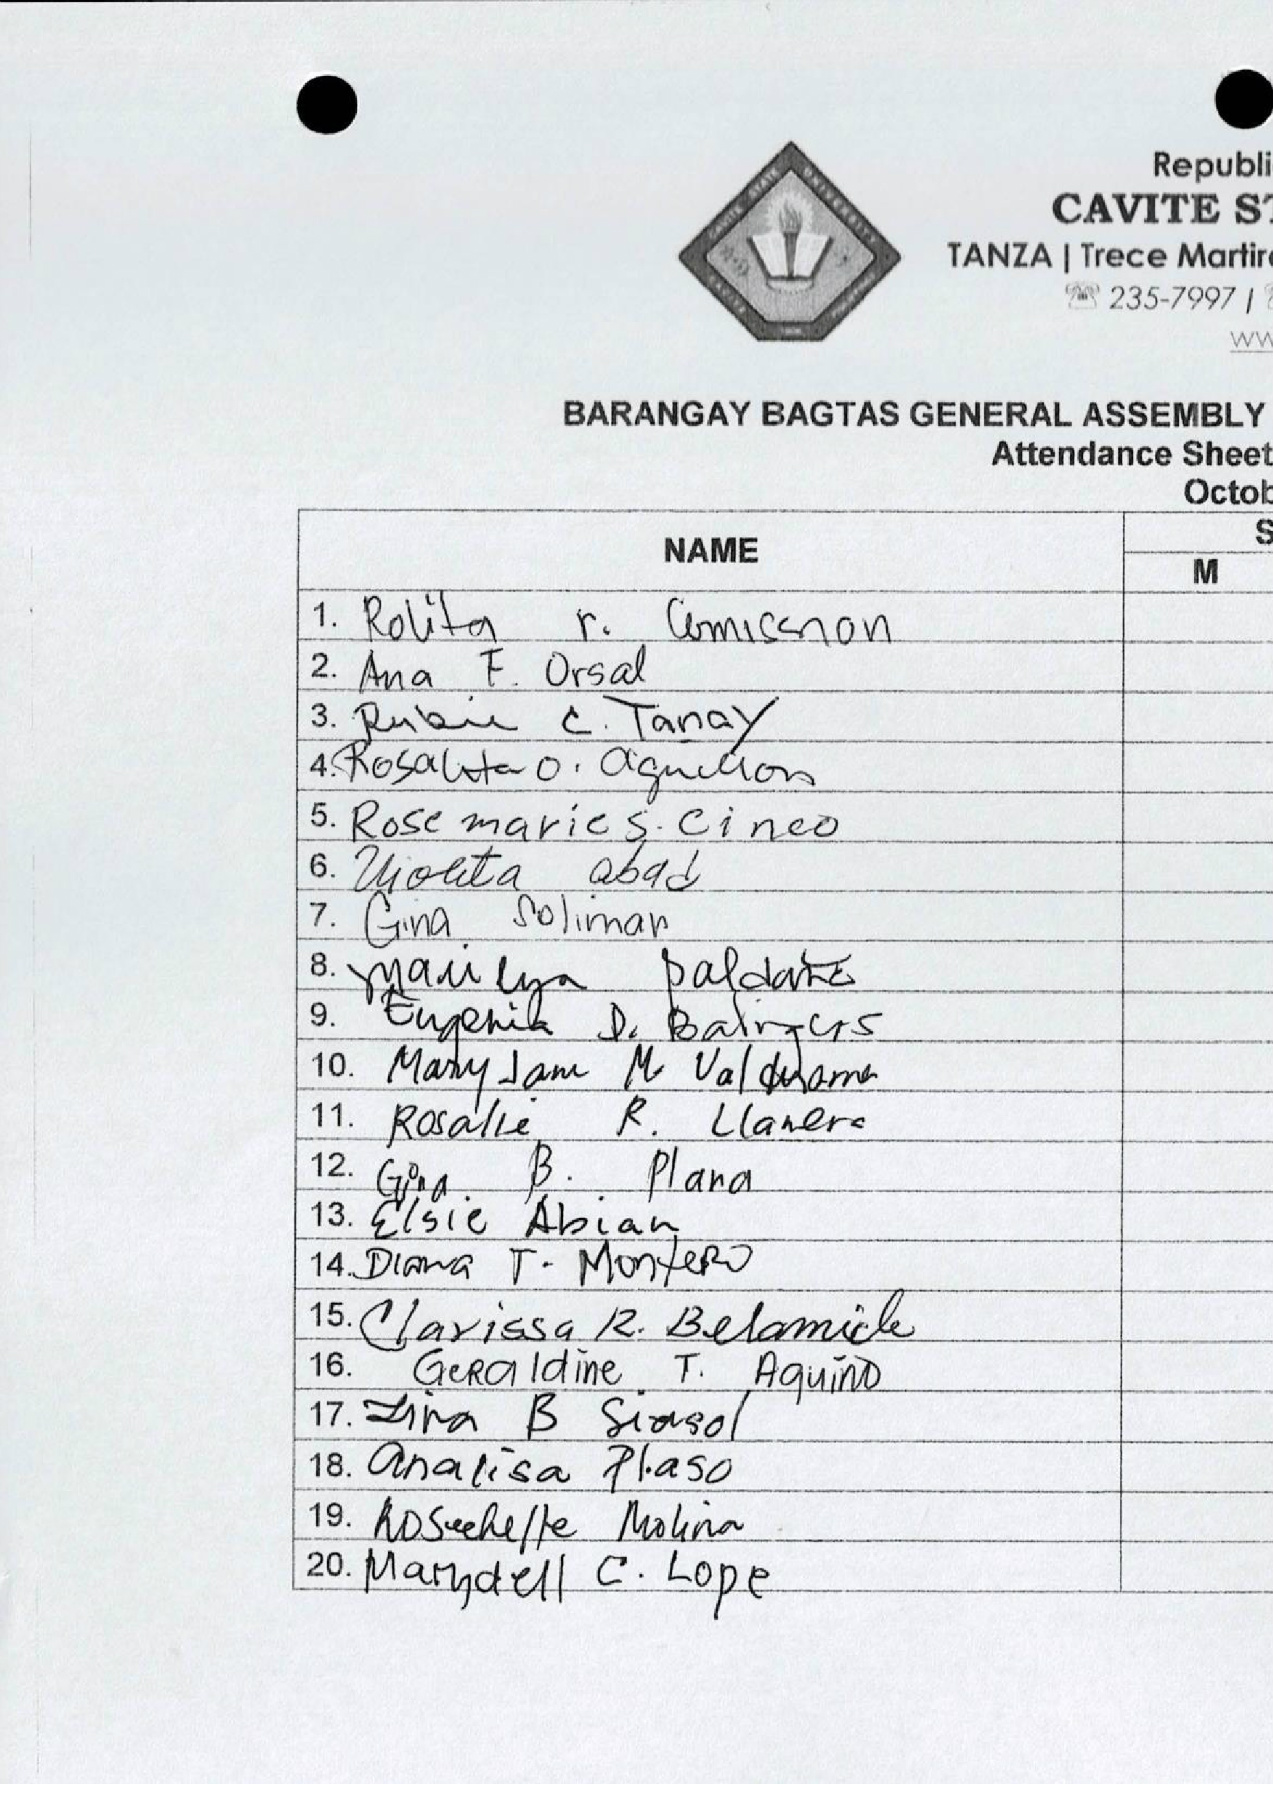 Republi
CAVITE ST
TANZA | Trece Martir
☏ 235-7997 |
ww
BARANGAY BAGTAS GENERAL ASSEMBLY
Attendance Sheet
Octob
NAME
S
M
1. Rolita r.
2. Ana F. Orsal
3. Rubie C. Tanay
4. Rosalita O.
5. Rosemarie S. Cinco
6. Violeta abad
7. Gina Soliman
8. Marilyn
9. Eugenia D.
10. Mary Jane M
11. Rosalie R. Llanera
12. Gina B. Plana
13. Elsie Abian
14. Diana T. Montero
15. Clarissa R.
16. Geraldine T. Aquino
17. Lina B Siasol
18. Analisa Plaso
19. Molina
20. Marydell C. Lope